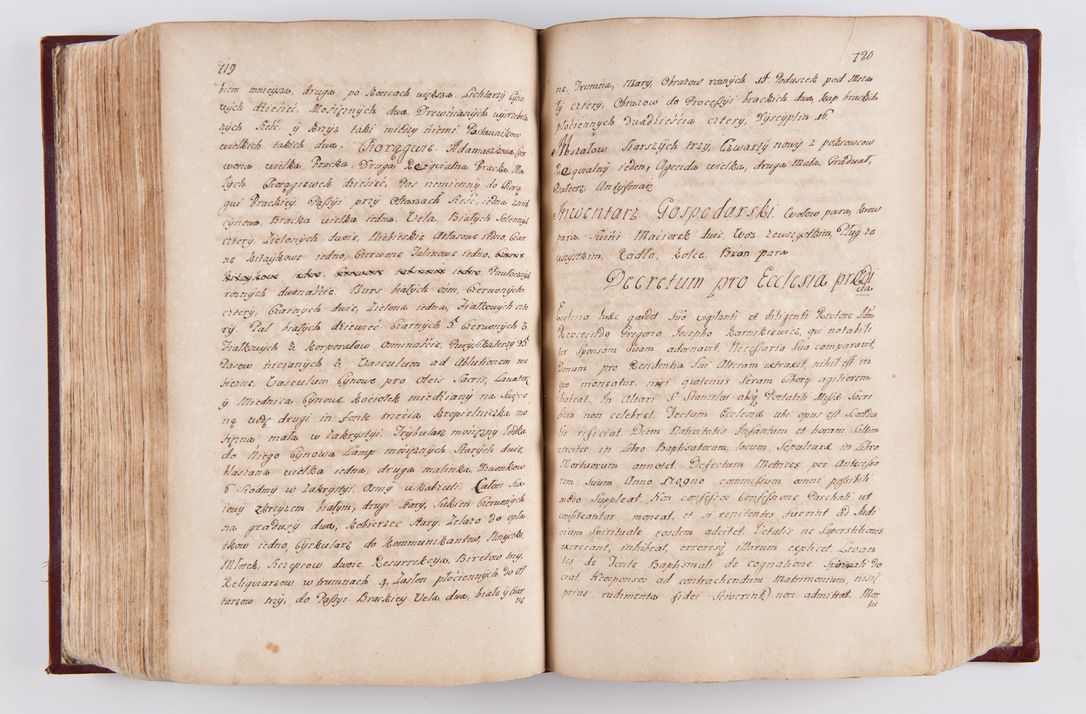 119
biem mnieysza, druga po koncach większa. Lichtarzy Cyno
wych dziesięć, Mosięznych dwa Drewnianych
szych sześć, y krzyz taki między niemi Postawnikow
wielkich takich dwa. Chorągwie Adamaszkowa Czer
wona wielka Bracka. Druga Bracka, Ma
łych Chorągiewek dziesięć, Pas nemienny do Chorą
gwi Brackiey Passyi przy Ołtarzach sześć, iedna
Cynowa, Bracka wielka iedna. Vela Białych
cztery, Zielonych dwie, Niebieskie Atłasowe iedno, Czar
ne kitaykowe iedno, Czerwone iedno,
roznych dwanaście. Burs białych osm, Czerwonych
cztery, Czarnych dwie, Zielona iedna, Fiałkowych czte
ry. Pal białych dziewięć Czarnych 5. Czerwonych 3
Fiałkowych 3. Korporałow Osmnaście, Puryfikaterzy 35
Pasow nicianych 3. Vasculum ad Ablutionem mo
siężne, Vasculum Cynowe pro Oleis Sacris, Lavaterz
y Miednica Cynowe Kociołek miedziany na Święco
ną wodę drugi in fonte trzecia Kropielniczka mo
siężna, mała w zakrystyi. Trybularz mosięzny Łodka
do niego Cynowa Lamp mosięznych Starych dwie,
blaszana wielka iedna, druga malinka. Dzwonkow
6 siodmy w zakrystyi, Osmy u Kaboturi Całon
iowy z krzyzem białym, drugi stary, Sukien Czerwonych
na gradusy dwa, Kobierzec stary. Żelazo do opła
tkow iedno, Cyrkularz do kommunikantow, Nozyczki,
Młotek, dwoie Resurrekcya, Biretow trzy,
Relikwiarzow w trumnach 4. Zasłon płociennych do oł
tarzow trzy, do Passyi Brackiey Vela dwa, białe y Czar
ne
120
ne, Trumna, Mary, Obrazow roznych 18 Poduszek pod Msza
ły cztery, Obrazow do Processyi brackich dwa, kap brackich
płociennych dwadzieścia cztery, Dyscyplin 16.
Mszałow Starszych trzy, Czwarty nowy z pokrowcem
iedem, Agenda wielka, druga mała, Graduał,
Psałterz Antyfonarz
Inwentarz Gospodarski. Wołow para, krow
para, Świni Maciorek dwie, Woz zewszystkim, Pług ze
wszystkim, Radło, Kolce Bron para
Decretum pro Ecclesia prædi
cta
Ecclesia hæc gaudet suo vigilanti et diligenti Rectore Adm
Reverendo Gregorio Josepho Karnkiewicz, qui notabili
ter Sponsam suam adornavit, Necessaria sua comparavit,
Domum pro Residentia sui Alteram extruxit, nihil est in
quo moneatur, nisi quatenus seram Cibory agiliorem
habeat. In Altari S. Stanislai absq Portatili Missæ Sacri
ficia non celebret. Tectum Ecclesiæ ubi opus est Scandu
lis reficiat. Diem Nativitatis Infantum et horam saltem
circiter in Libro Baptisatorum, locum, Sepulturæ in Libro
Mortuorum annotet Defectum Metrices per Antecesso
rem suum Anno Magno commissum omni possibili
modo suppleat. Non confessos Confessione Paschali ut
confiteantur moneat, et si renitentes fuerint ad Judi
cium Spirituale eosdem adcitet Vetulis ne Superstitiones
exerceant, inhibeat, errores illarum explicet. Levan
tes de Fonte Baptismali de cognatione Spirituali do
ceat. Responsos ad contrahendum Matrimonium, nisi
prius rudimenta fidei sciverint non admittat. Mor
tu